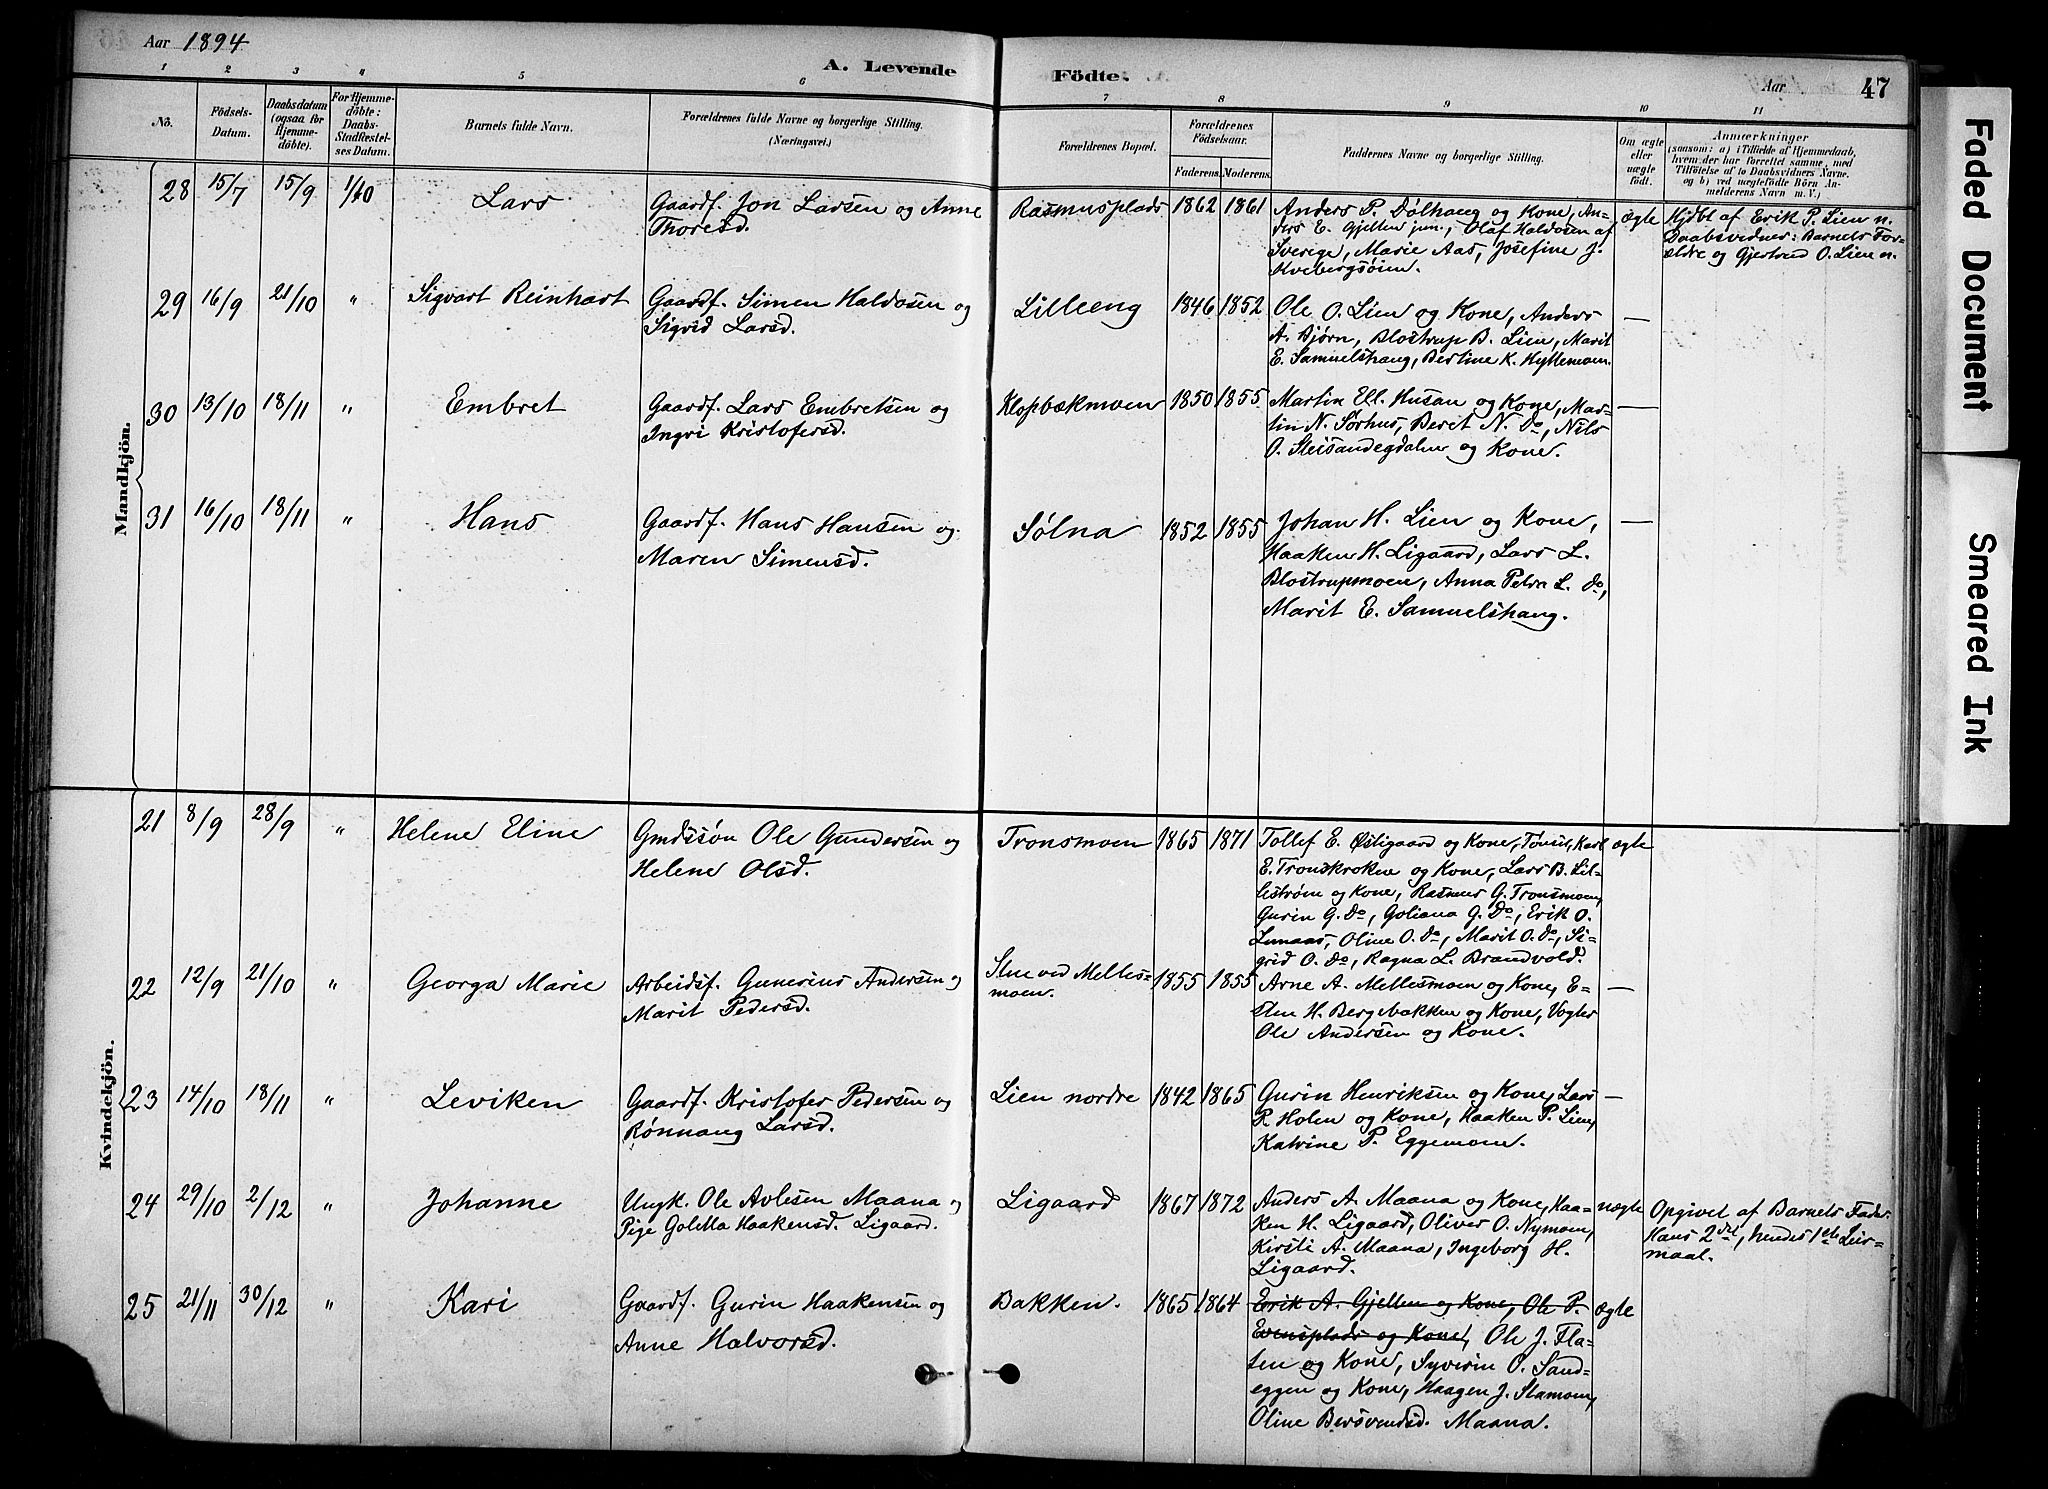 Aar 1894
A. Levende
Födte.
Aar
47
1 2 3 4 5 6 7 8 9 10 11
No.
Födsels-Datum.
Daabsdatum (ogsaa for Hjemmedöbte).
For Hjemmedöbte: Daabs-Stadfestelses Datum.
Barnets fulde Navn.
Forældrenes fulde Navne og borgerlige Stilling. (Næringsvei.)
Forældrenes Bopæl.
Forældrenes Födselsaar.
Faderens. Moderens.
Faddernes Navne og borgerlige Stilling.
Om ægte eller uægte födt.
Anmærkninger
(saasom: a) i Tilfælde af Hjemmedaab, hvem der har forrettet samme, med Tilföielse af to Daabsvidners Navne. og b) ved uægtefödte Börn Anmelderens Navn m. V.)
Mandkjön.
28 15/7 15/9 1/10 Lars
Gaardf. Jon Larsen og Anne
Thoresd.
Rasmusplads 1862 1861
Anders P. Dølhaug og Kone, An-
ders E. Gjelten jun., Olaf Haldosen af
Sverige, Marie Aas, Josefine J.
Kvebergsøien.
ægte
Hjdbt af Erik P. Lien n.
Daabsvidner: Barnets For-
ældre og Gjertrud O. Lien n.
29 16/9 21/10 " Sigvart Reinhart
Gaardf. Simen Haldosen og
Sigrid Larsd.
Lilleeng 1846 1852
Ole O. Lien og Kone, Anders
A. Bjørn, Blostrup B. Lien, Marit
E. Samuelshaug, Bertine K. Hyttemoen.
—
30 13/10 18/11 " Embret
Gaardf. Lars Embretsen og
Ingri Kristofersd.
Klopbækmoen 1850 1855
Martin Ell. Husan og Kone, Mar-
tin N. Sørhus, Berit N. Do, Nils
O. og Kone.
—
31 16/10 18/11 " Hans
Gaardf. Hans Hansen og
Maren Simensd.
Sølna 1852 1855
Johan H. Lien og Kone,
Haaken H. Ligaard, Lars L.
Blostrupmoen, Anna Petra L. Do,
Marit E. Samuelshaug.
—
Kvindekjön.
21 8/9 28/9 " Helene Eline
Gmdssøn Ole Gundersen og
Helene Olsd.
Tronsmoen 1865 1871
Tollef E. Østigaard og Kone, Karl
E. Tronskroken og Kone, Lars B. Lil-
lestrøm og Kone, Rasmus G. Tronsmoen,
Gurin G. Do, Goliana G. Do, Erik O.
Lunaas, Oline O. Do, Marit O. Do, Si-
grid O. Do, Ragna L. Brandvold.
ægte
22 12/9 21/10 " Georga Marie
Arbeidsf. Gunerius Andersen og
Marit Pedersd.
Stue ved Melles-
moen. 1855 1855
Arne A. Mellesmoen og Kone, E-
sten H. Bergebakken og Kone, Vogter
Ole Andersen og Kone.
—
23 14/10 18/11 " Leviken
Gaardf. Kristofer Pedersen og
Rønnaug Larsd.
Lien nordre 1842 1865
Gurin Henriksen og Kone, Lars
R. Holen og Kone, Haaken P. Lien,
Katrine P. Eggemoen.
—
24 29/10 2/12 " Johanne
Ungk. Ole Avlesen Maana og
Pige Goletta Haakensd. Ligaard.
Ligaard 1867 1872
Anders A. Maana og Kone, Haa-
ken H. Ligaard, Oliver O. Nymoen,
Kirsti A. Maana, Ingeborg H.
Ligaard.
uægte
Opgivet af Barnets Fader.
Hans 2det, hendes 1ste Leier-
maal.
25 21/11 30/12 " Kari
Gaardf. Gurin Haakensen og
Anne Halvorsd.
Bakken. 1865 1864
Erik A. Gjelten og Kone, Ole P.
Evensplads og Kone, Ole J. Fla-
ten og Kone, Syverin O. Sand-
eggen og Kone, Haagen J. Stamoen,
Oline Bersvendsd. Maana.
ægte
Faded Document
Smeared Ink